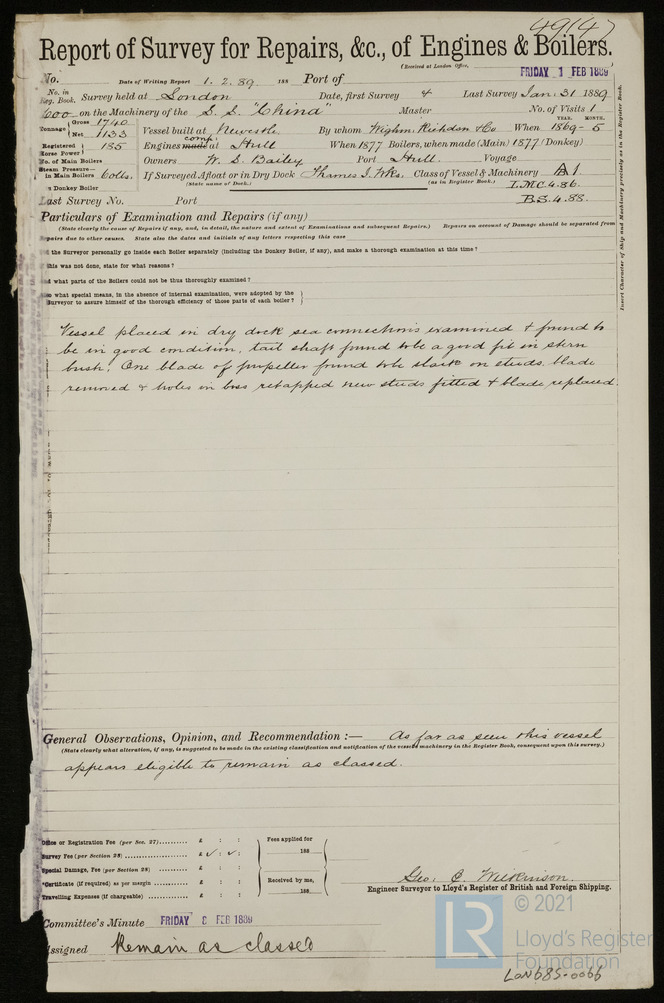 49147
Report of Survey for Repairs, &c., of Engines & Boilers.
(Received at London Office, FRIDAY 1 FEB 1889
No. Date of Writing Report 1. 2. 89 188 Port of
No. in Reg. Book. Survey held at London Date, first Survey & Last Survey Jan: 31 1889
600 on the Machinery of the S. S. "China" Master No. of Visits 1
Tonnage Gross 1740 Net 1133 Vessel built at Newcastle By whom Wighm. Richdson & Co When YEAR. MONTH. 1869 - 5
Registered Horse Power 185 Engines made comp: at Hull When 1877 Boilers, when made (Main) 1877 (Donkey)
No. of Main Boilers Owners W. S. Bailey Port Hull. Voyage
Steam Pressure— in Main Boilers 60lbs. If Surveyed Afloat or in Dry Dock Thames I. Wks. Class of Vessel & Machinery A1
in Donkey Boiler (State name of Dock.) (as in Register Book.) L.M.C. 4.86.
Last Survey No. Port B.S. 4.88.
Particulars of Examination and Repairs (if any)
(State clearly the cause of Repairs if any, and, in detail, the nature and extent of Examinations and subsequent Repairs.) Repairs on account of Damage should be separated from
Repairs due to other causes. State also the dates and initials of any letters respecting this case
d the Surveyor personally go inside each Boiler separately (including the Donkey Boiler, if any), and make a thorough examination at this time?
this was not done, state for what reasons?
d what parts of the Boilers could not be thus thoroughly examined?
so what special means, in the absence of internal examination, were adopted by the
Surveyor to assure himself of the thorough efficiency of those parts of each boiler?
Insert Character of Ship and Machinery precisely as in the Register Book.
Vessel placed in dry dock sea connections examined & found to
be in good condition, tail shaft found to be a good fit in stern
bush. One blade of propeller found to be slack on studs. blade
removed & holes in boss retapped new studs fitted & blade replaced.
General Observations, Opinion, and Recommendation :— As far as seen this vessel
(State clearly what alteration, if any, is suggested to be made in the existing classification and notification of the vessels machinery in the Register Book, consequent upon this survey.)
appears eligible to remain as classed.
Office or Registration Fee (per Sec. 27).......... £ : : Fees applied for
Survey Fee (per Section 28) .......... £ : : 188
Special Damage, Fee (per Section 28) £ : :
*Certificate (if required) as per margin £ : : Received by me,
Travelling Expenses (if chargeable) £ : : 188
Geo. C. Wilkinson.
Engineer Surveyor to Lloyd's Register of British and Foreign Shipping.
Committee's Minute FRIDAY 8 FEB 1889
Assigned Remain as classed
LR
© 2021
Lloyd's Register
Foundation
LON685-0066